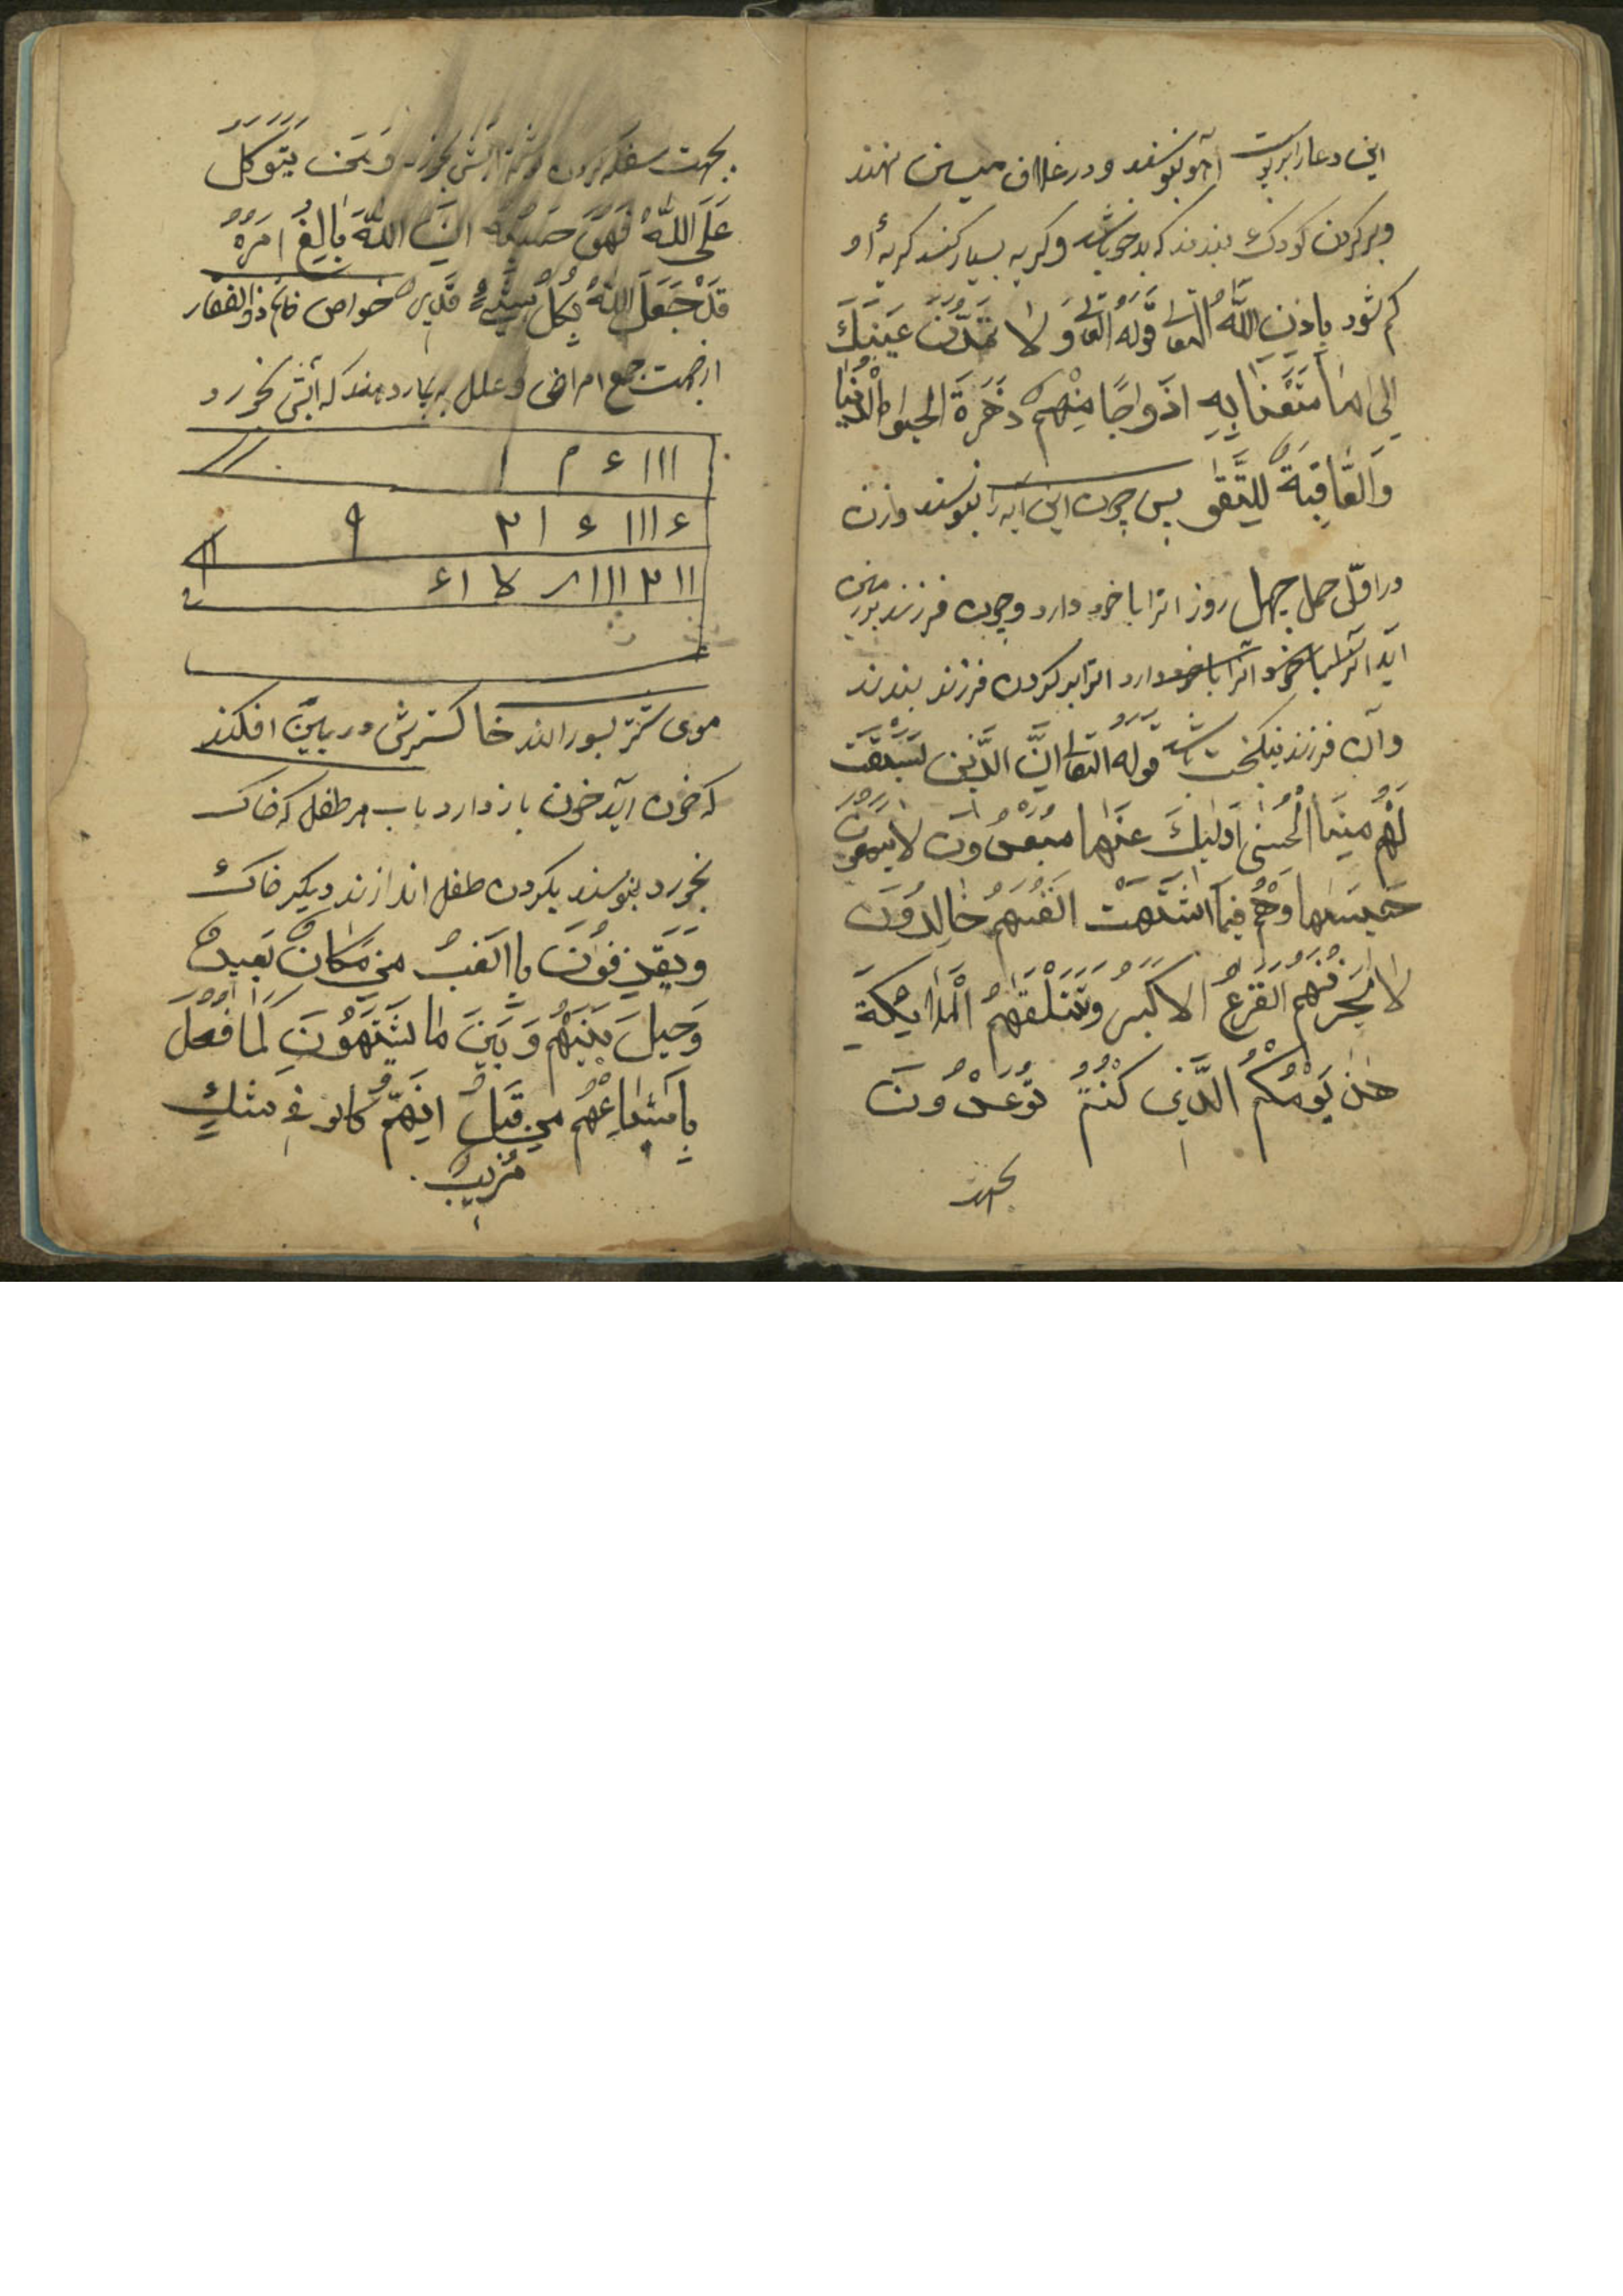 این دعا را بر پوست آهو بنویسند و در غلاف مسین نهند
و بر کردن کودک بندند که بدخو باشد و کریه بسیار کند کریهٔ او
کم شود باذن الله التعالی قوله التعالی وَلا تَمُدَّنَّ عَینَیكَ
اِلی ما مَتَّعْنا بِهِ اَزْواجًا مِنْهُمْ زَهْرَةَ الحیوٰة الدُّنْیا
وَالعاقِبَةُ لِلتَّقوٰی پس چون این آیه را بنویسند و زن
در اوّل حمل چهل روز انرا با خود دارد و چون فرزند بزمین
اید انرا دارد انرا بر کردن فرزند بندند
و آن فرزند نیکبخت باشد قوله التعالی اِنَّ الَّذینَ سَبَقَت
لَهُم مِنَّا الحُسنی اُولئِكَ عَنْها مُبْعَدُونَ لا یَسمَعونَ
حَسیسَها وَهُم فیما اشتَهَت اَنفُسُهُم خالِدُونَ
لا یَحزُنُهُم الفَزَعُ الاَکبَرُ وَتَتَلَقّٰهُمُ المَلائِکَةِ
هٰذا یَوْمُکُمُ الَّذی کُنْتُمْ تُوعَدُونَ
بجهت
بجهت وَمَن یَتَوَکَّل
عَلَی اللّٰهِ فَهُوَ حَسبُهُ اِنَّ اللّٰهَ بالِغُ اَمرِهِ
قَدْ جَعَلَ اللّٰهُ لِکُلِّ شَیءٍ قَدرًا خواص خاتم ذو الفقار
از جهت جمیع امراض و علل به بیمار دهند که آبش بخورد
موی سر بسوزانند خاکسترش در بینی افکند
که خون آید خون باز دارد باب هر طفل که خاک
بخورد بنویسند بکردن طفل اندازند دیکر خاک
وَیَقذِفُونَ بِالغَیبِ مِن مَکانٍ بَعیدٍ
وَحیلَ بَینَهُم وَبَینَ ما یَشتَهُونَ کَما فُعِلَ
بِاَشیاعِهِم مِن قَبلُ اِنَّهُم کانُو فی شَكٍّ
مُریبٍ